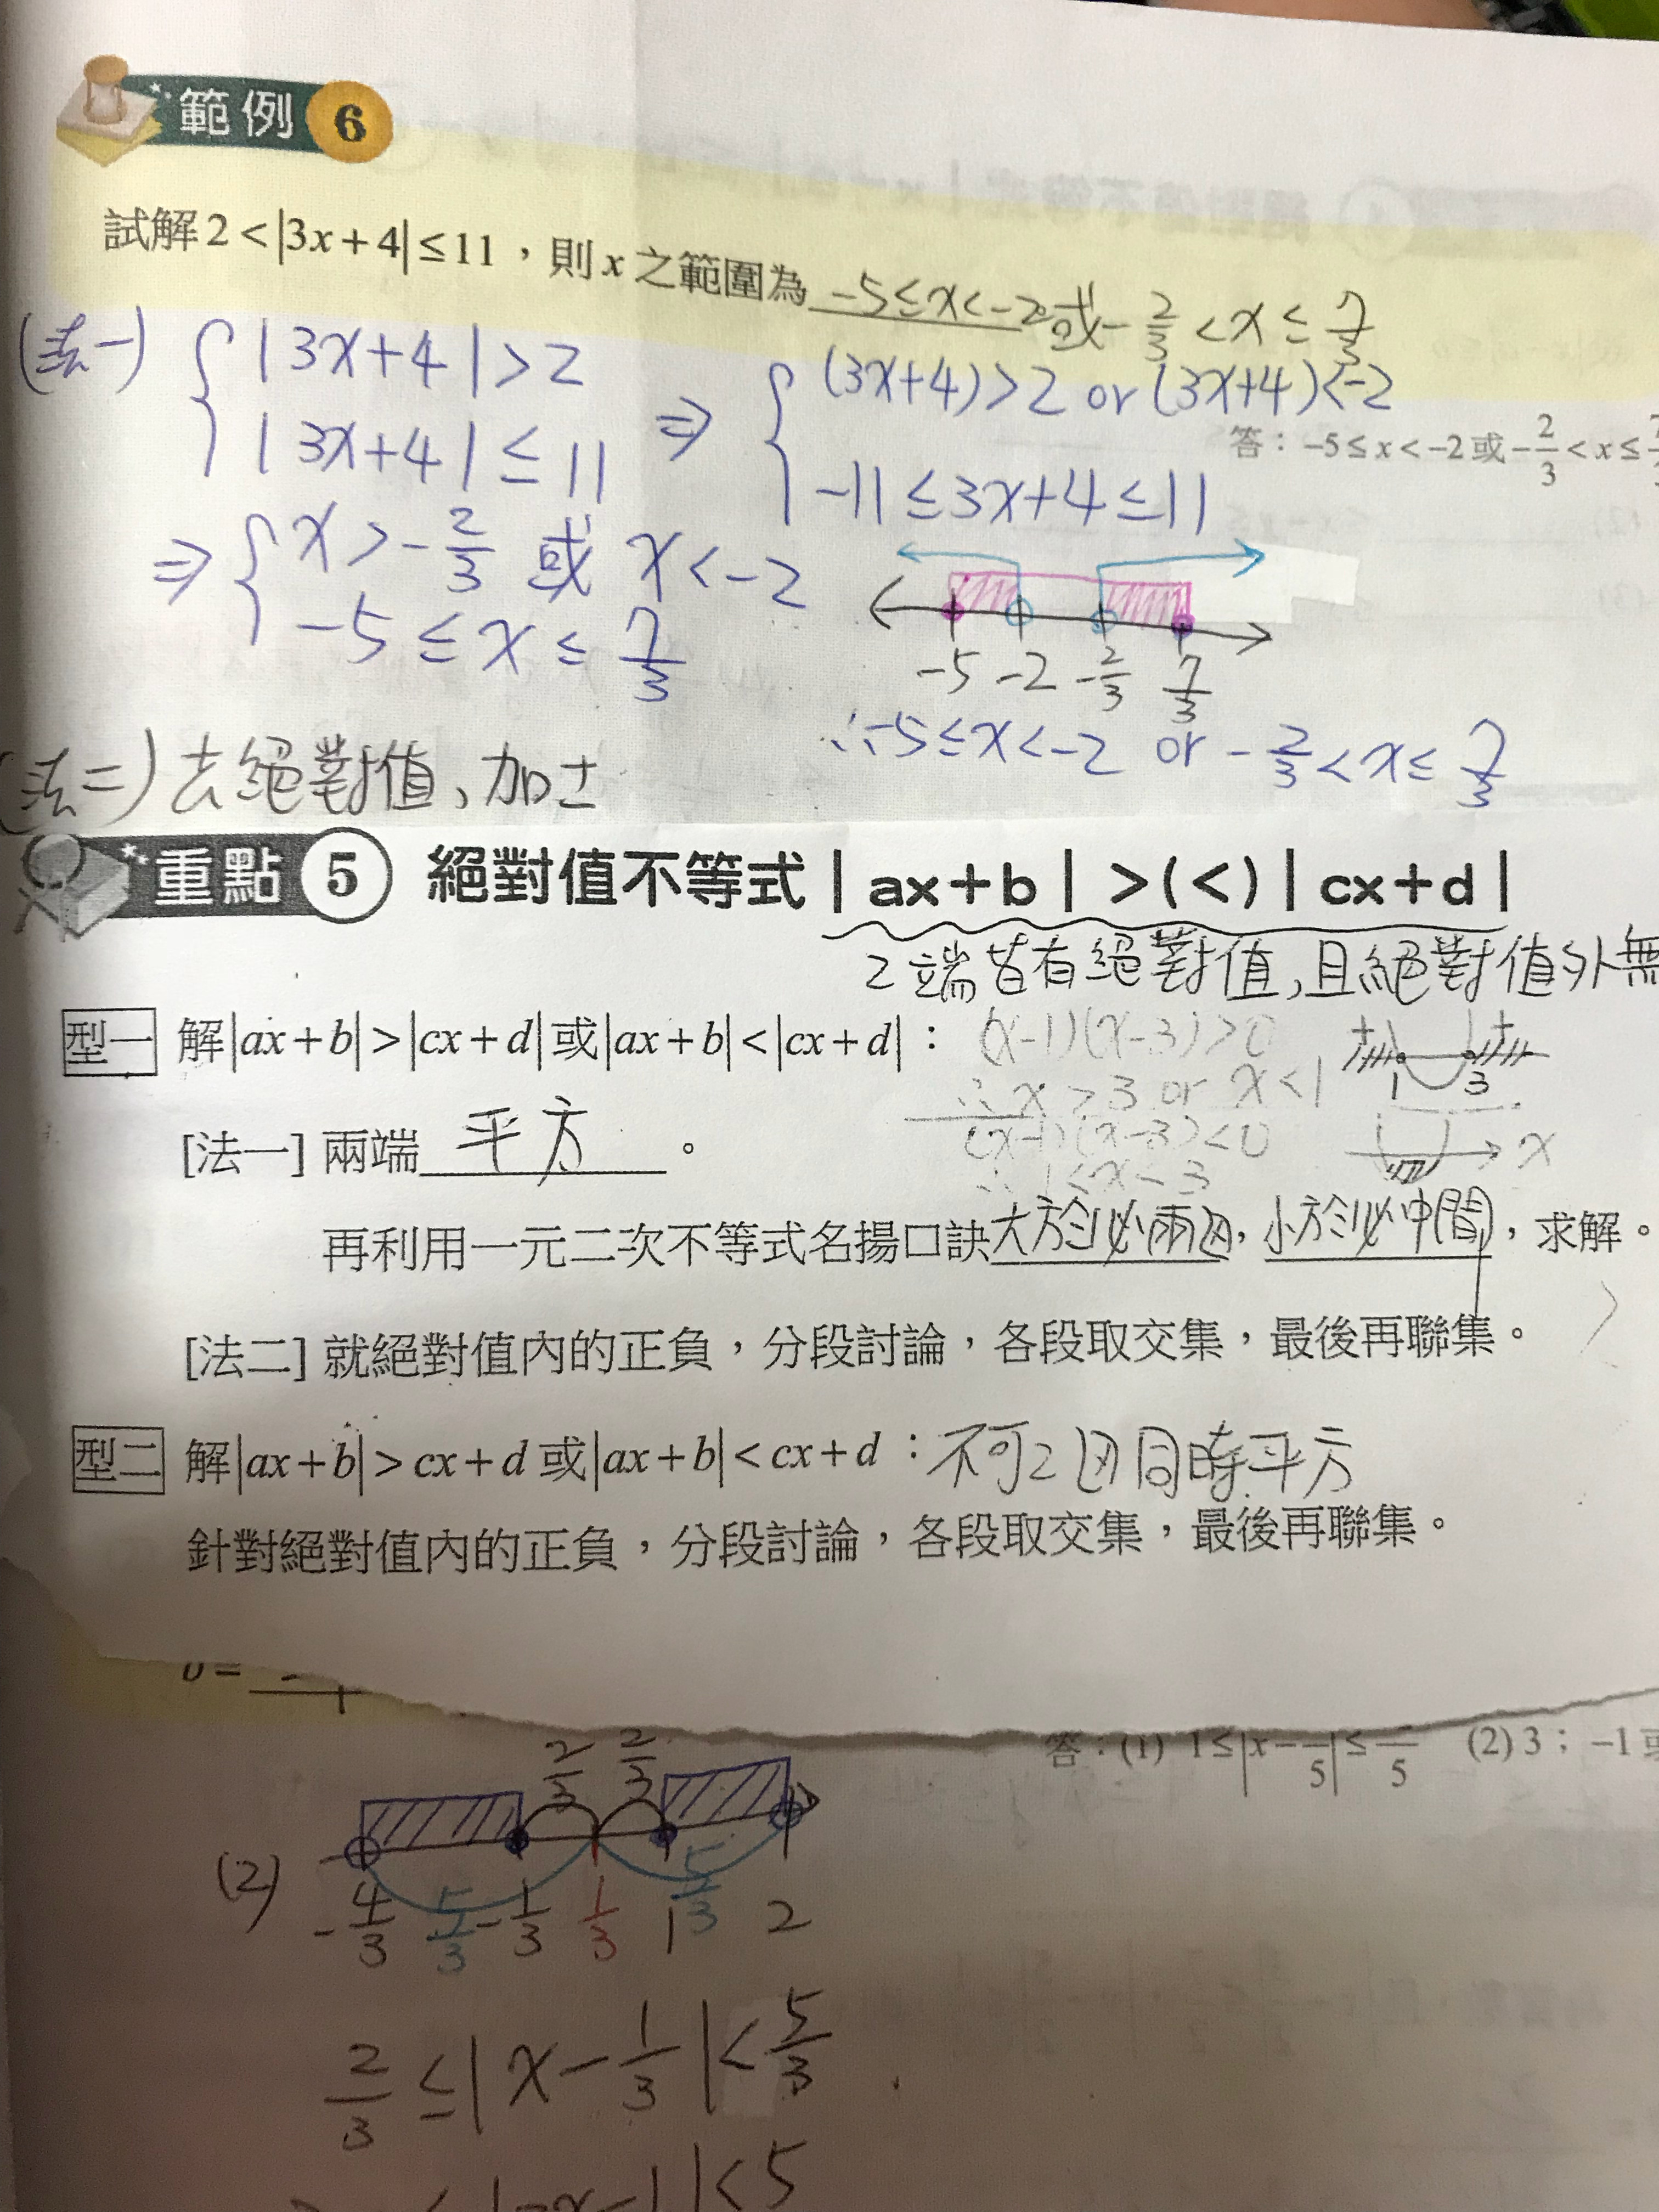 範例 6
試解 2 < |3x + 4| ≤ 11,則 x 之範圍為 -5 ≤ x < -2 或 -2/3 < x ≤ 7/3
(法一) { |3x+4| > 2 ⇒ { (3x+4) > 2 or (3x+4) < -2
|3x+4| ≤ 11 -11 ≤ 3x+4 ≤ 11
答:-5 ≤ x < -2 或 -2/3 < x ≤
⇒ { x > -2/3 或 x < -2
-5 ≤ x ≤ 7/3
-5 -2 -2/3 7/3
∴ -5 ≤ x < -2 or -2/3 < x ≤ 7/3
(法二) 去絕對值、加±
重點 5 絕對值不等式 | ax+b | >(<) | cx+d |
2端皆有絕對值,且絕對值外無
型一 解 |ax+b| > |cx+d| 或 |ax+b| < |cx+d|:
(x-1)(x-3)>0
+ + 1 3
∴ x > 3 or x < 1
[法一] 兩端 平方 。
(x-1)(x-3)<0
x
∴ 1 < x < 3
再利用一元二次不等式名揚口訣大於必兩邊,小於必中間,求解。
[法二] 就絕對值內的正負,分段討論,各段取交集,最後再聯集。
型二 解 |ax+b| > cx+d 或 |ax+b| < cx+d:不可2邊同時平方
針對絕對值內的正負,分段討論,各段取交集,最後再聯集。
答:(1) 1 ≤ |x - /5| ≤ /5 (2) 3;-1 或
2/3 2/3
(2)
-4/3 5/3 -1/3 1/3 1 5/3 2
2/3 ≤ |x - 1/3| < 5/3